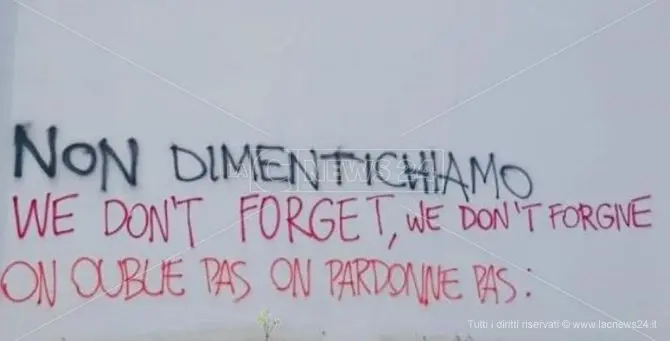 NON DIMENTICHIAMO
WE DON'T FORGET, WE DON'T FORGIVE
ON OUBLIE PAS ON PARDONNE PAS:
LACNEWS24
Tutti i diritti riservati © www.lacnews24.it